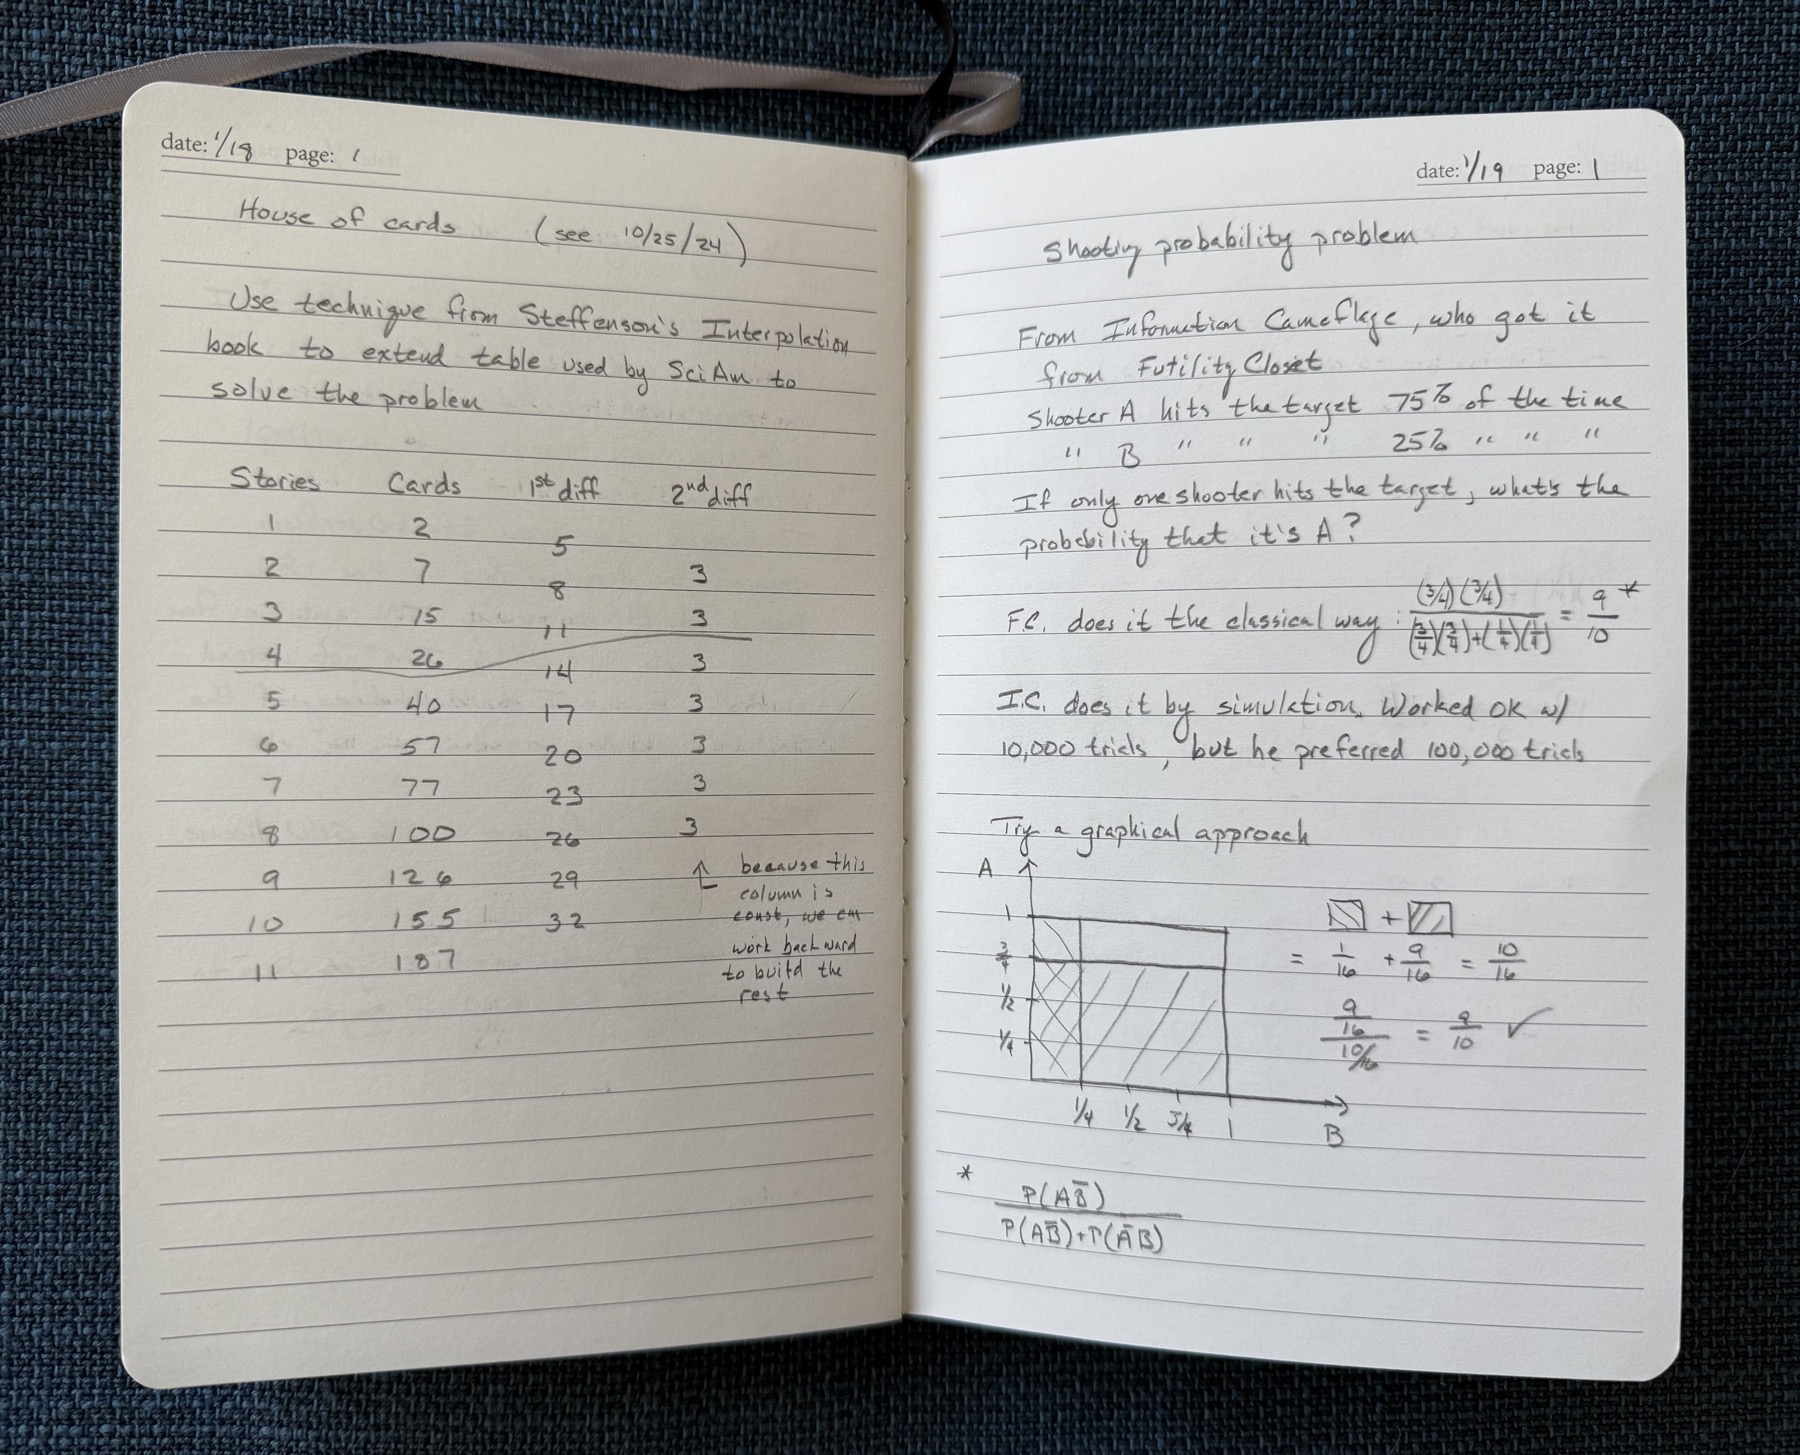 date: 1/18 page: 1
House of cards (see 10/25/24)
Use technique from Steffenson's Interpolation
book to extend table used by SciAm to
solve the problem
Stories Cards 1st diff 2nd diff
1 2
5
2 7 3
8
3 15 3
11
4 26 3
14
5 40 3
17
6 57 3
20
7 77 3
23
8 100 3
26
9 126
29
10 155
32
11 187
↑ because this
column is
const, we can
work backward
to build the
rest
date: 1/19 page: 1
Shooting probability problem
From Information Cameflage, who got it
from Futility Closet
Shooter A hits the target 75% of the time
" B " " " 25% " " "
If only one shooter hits the target, what's the
probability that it's A?
F.C. does it the classical way: (3/4)(3/4) / (3/4)(3/4)+(1/4)(1/4) = 9/10 *
I.C. does it by simulation. Worked OK w/
10,000 trials, but he preferred 100,000 trials
Try a graphical approach
A
1
3/4
1/2
1/4
1/4 1/2 3/4 1
B
+
= 1/16 + 9/16 = 10/16
9/16 / 10/16 = 9/10 ✓
* P(AB̅) / P(AB̅)+P(A̅B)